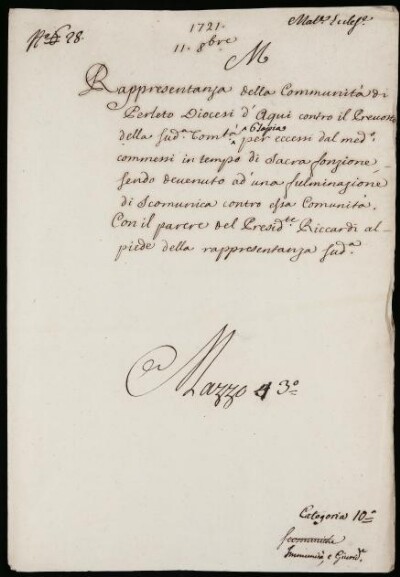 Nº 6 28.
1721.
11. 8bre
Matre Ecclese.
M
Rappresentanza della Communità di
Perleto Diocesi d'Aqui contro il Prevosto
della sudª. Comtà ^ Chiesa per eccessi dal medº.
commessi in tempo di Sacra fonzione,
sendo devenuto ad'una fulminazione
di Scomunica contro essa Comunità.
Con il parere del Presidte. Riccardi al
piede della rappresentanza sudª.
Mazzo 4 3º
Categoria 10ª
Scomuniche
Immunità, e Giurisdª.